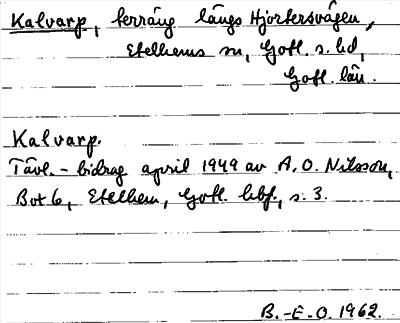 Kalvarp, terräng längs Hjortersvägen,
Etelhems sn, Gotl. s. hd,
Gotl. län.
Kalvarp.
Tävl.-bidrag april 1949 av A.O. Nilsson,
Bot 6, Etelhem, Gotl. hbf., s. 3.
B.-E.O. 1962.